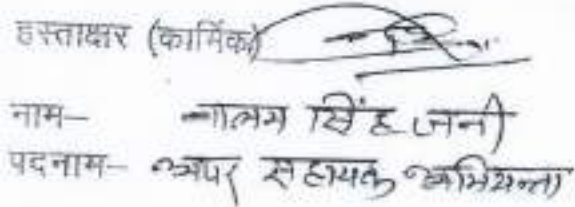 हस्ताक्षर (कार्मिक)
नाम– आलम सिंह जनी
पदनाम– अपर सहायक अभियन्ता